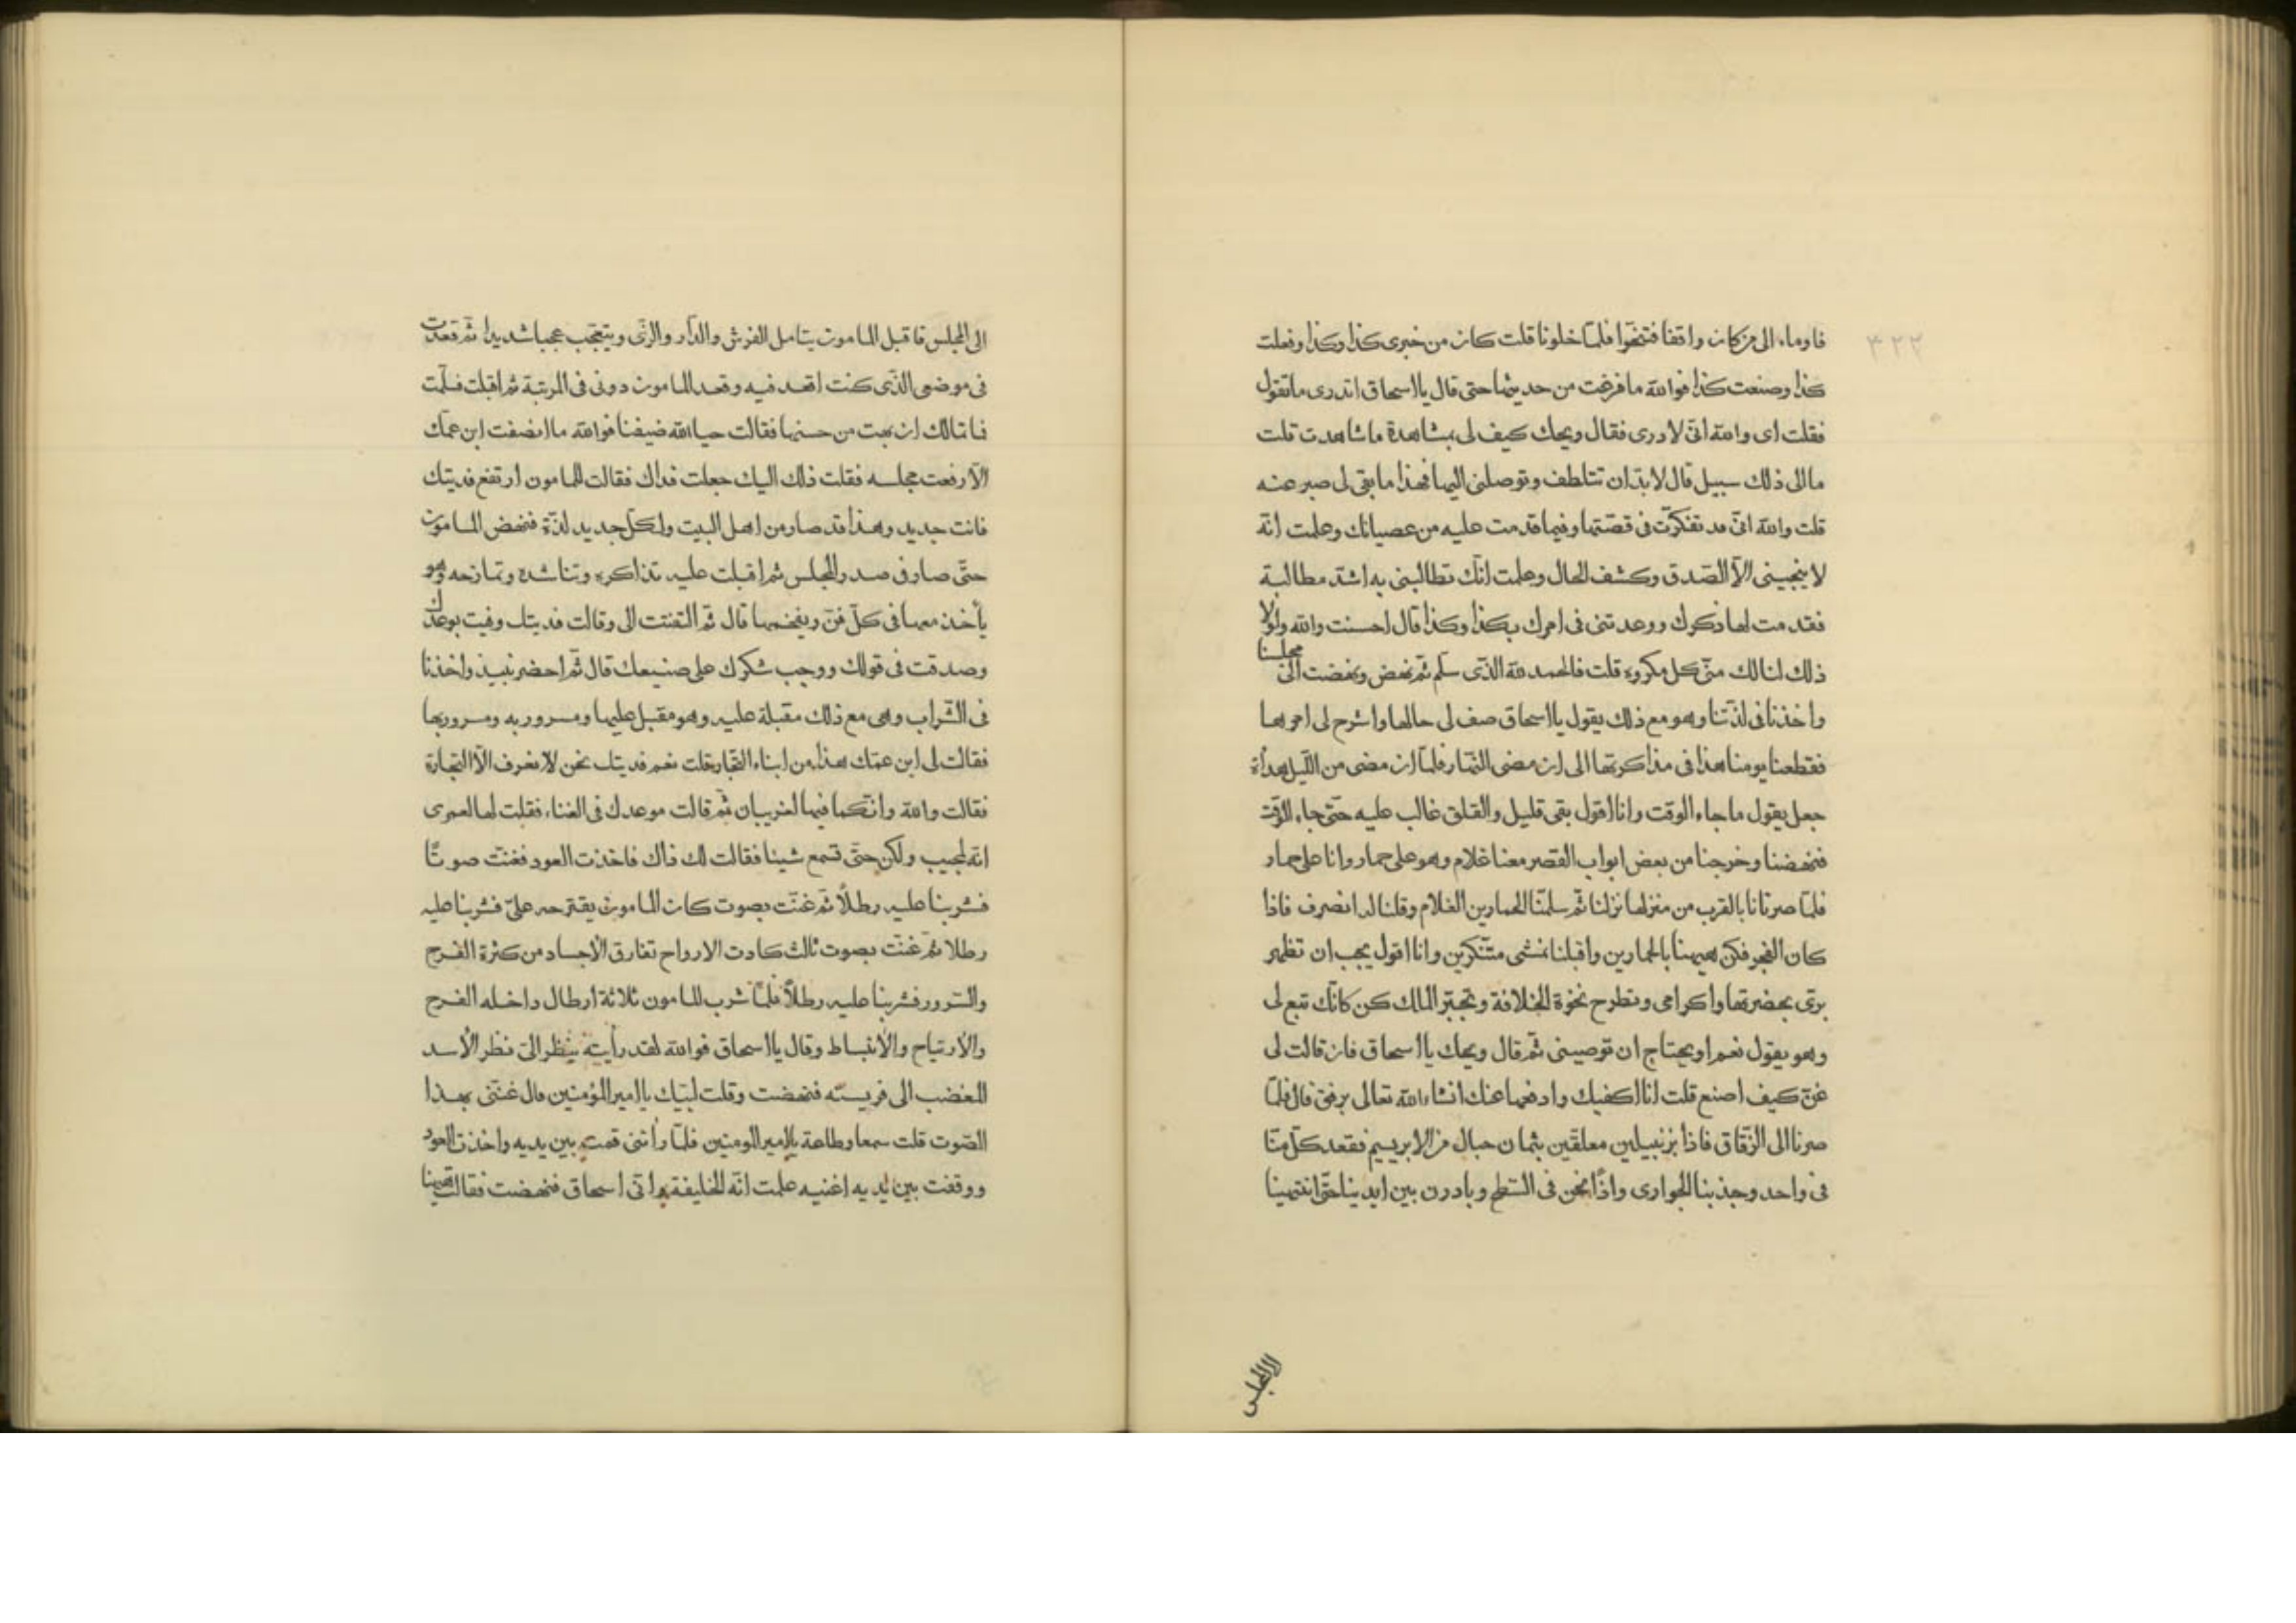 ٣٢٢
فاوماء الى من كان واقفا فتنحّوا فلمّا خلونا قلت كان من خبرى كذا وكذا وفعلت
كذا وصنعت كذا فوالله ما فرغت من حديثها حتى قال يا اسحاق اتدرى ماتقول
فقلت اى والله انّى لادرى فقال ويحك كيف لى بمشاهدة ماشاهدت قلت
ماالى ذلك سبيل قال لابدّ ان تتلطف وتوصلنى اليها فهذا مابقى لى صبر عنه
قلت والله انّى قد تفكرّت فى قصّتها وفيما قدمت عليه من عصيانك وعلمت انّه
لا ينجينى الاّ الصّدق وكشف الحال وعلمت انّك تطالبنى به اشدّ مطالبة
فقدمت لها ذكرك ووعدتنى فى امرك بكذا وكذا قال احسنت والله ولولا
ذلك لنالك منّى كل مكروه قلت فالحمد لله الذّى سلّم ثمّ نهض ونهضت الى مجلسنا
واخذنا فى لذّتنا وهو مع ذلك يقول يا اسحاق صف لى حالها واشرح لى امرها
فقطعنا يومنا هذا فى مذاكرتها الى ان مضى النّهار فلمّا ان مضى من اللّيل هدأة
جعل يقول ماجاء الوقت وانا اقول بقى قليل والقلق غالب عليه حتّى جاء الوقت
فنهضنا وخرجنا من بعض ابواب القصر معنا غلام وهو على حمار وانا على حمار
فلمّا صرنا نا بالقرب من منزلها نزلنا ثمّ سلمنّا الحمارين الغلام وقلنا له انصرف فاذا
كان الفجر فكن هيهنا بالحمارين واقبلنا نمشى متنكرين وانا اقول يجب ان تظهر
برّى بحضرتها واكرامى وتطرح نخوة الخلافة وتجبّر الملك كن كانّك تبع لى
وهو يقول نعم اويحتاج ان توصينى ثمّ قال ويحك يا اسحاق فان قالت لى
غنّ كيف اصنع قلت انا اكفيك وادفعها عنك انشاءالله تعالى برفق قال فلمّا
صرنا الى الزّقاق فاذا بزنبيلين معلقّين بثمان حبال من الابريسيم فقعد كلّ منّا
فى واحد وجذبنا الجوارى واذًا نحن فى السّطح وبادرن بين ايدينا حتّى انتهينا
الى المجلس
الى المجلس فاقبل المامون يتامل الفرش والدّار والزّى ويتعّجب عجبا شديدا ثمّ قعدت
فى موضعى الذّى كنت اقعد فيه وقعد المامون دونى فى المرتبة ثم اقبلت فسلّمت
فما تمالك ان بهت من حسنها فقالت حيا الله ضيفنا فوالله ماانصفت ابن عمّك
الاّ رفعت مجلسه فقلت ذلك اليك جعلت فداك فقالت للمامون ارتفع فديتك
فانت جديد وهذا قد صار من اهل البيت ولكلّ جديد لذّة فنهض المامون
حتّى صار فى صدر المجلس ثم اقبلت عليه تذاكره وتناشده وتمازحه وهو
يأخذ معها فى كلّ فنّ ويفخمها قال ثمّ التفتت الى وقالت فديتك وفيت بوعدك
وصدقت فى قولك ووجب شكرك على صنيعك قال ثمّ احضر نبيذ واخذنا
فى الشّراب وهى مع ذلك مقبلة عليه وهو مقبل عليها ومسرور به ومسرور بها
فقالت لى ابن عمّك هذا من ابناء التّجار قلت نعم فديتك نحن لانعرف الاّ التّجارة
فقالت والله وانّكما فيها لغريبان ثمّ قالت موعدك فى الغناء فقلت لها لعمرى
انّه لمجيب ولكن حتّى تسمع شيئا فقالت لك ذاك فاخذت العود فغنّت صوتًا
فشربنا عليه رطلاً ثمّ غنّت بصوت كان المامون يقترحه علىّ فشربنا عليه
رطلا ثمّ غنّت بصوت ثالث كادت الارواح تفارق الاجساد من كثرة الفرح
والسّرور فشربنا عليه رطلاً فلمّا شرب المامون ثلاثة ارطال داخله الفرح
والارتياح والانبساط وقال يا اسحاق فوالله لقد رأيته ينظر الىّ نظر الأسد
المغضب الى فريسته فنهضت وقلت لبّيك يا اميرالمؤمنين قال غنّنى بهذا
الصّوت قلت سمعا وطاعة يا اميرالمومنين فلمّا رأتنى قمت بين يديه واخذت العود
ووقفت بين يديه اغنيه علمت انّه الخليفة وانّى اسحاق فنهضت فقالت هيهنا